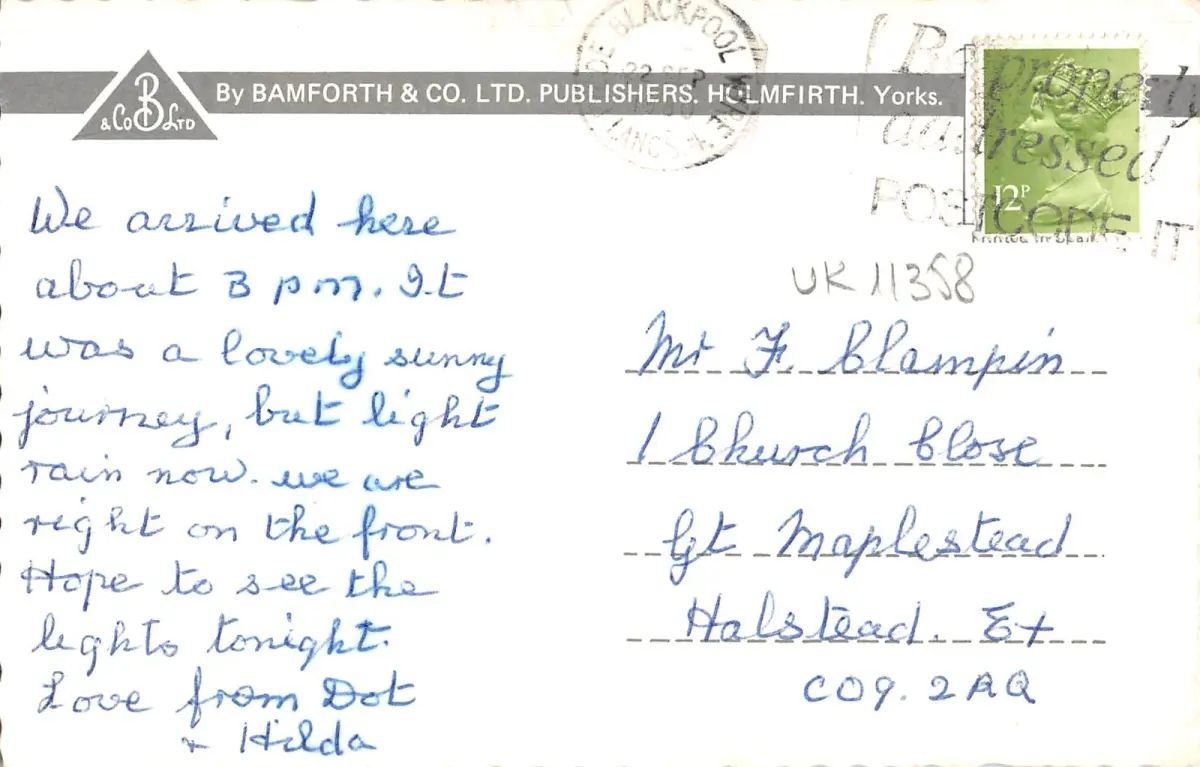 B
& Co LTD
By BAMFORTH & CO. LTD. PUBLISHERS. HOLMFIRTH. Yorks.
BLACKPOOL WYRE
LANCS
22 SEP
Be properly
addressed
POSTCODE IT
12P
We arrived here
about 3 pm. It
was a lovely sunny
journey, but light
rain now. we are
right on the front.
Hope to see the
lights tonight.
Love from Dot
+ Hilda
UK 11358
Mr F. Clampin
1 Church Close
Gt Maplestead
Halstead. Ex
CO9. 2AQ